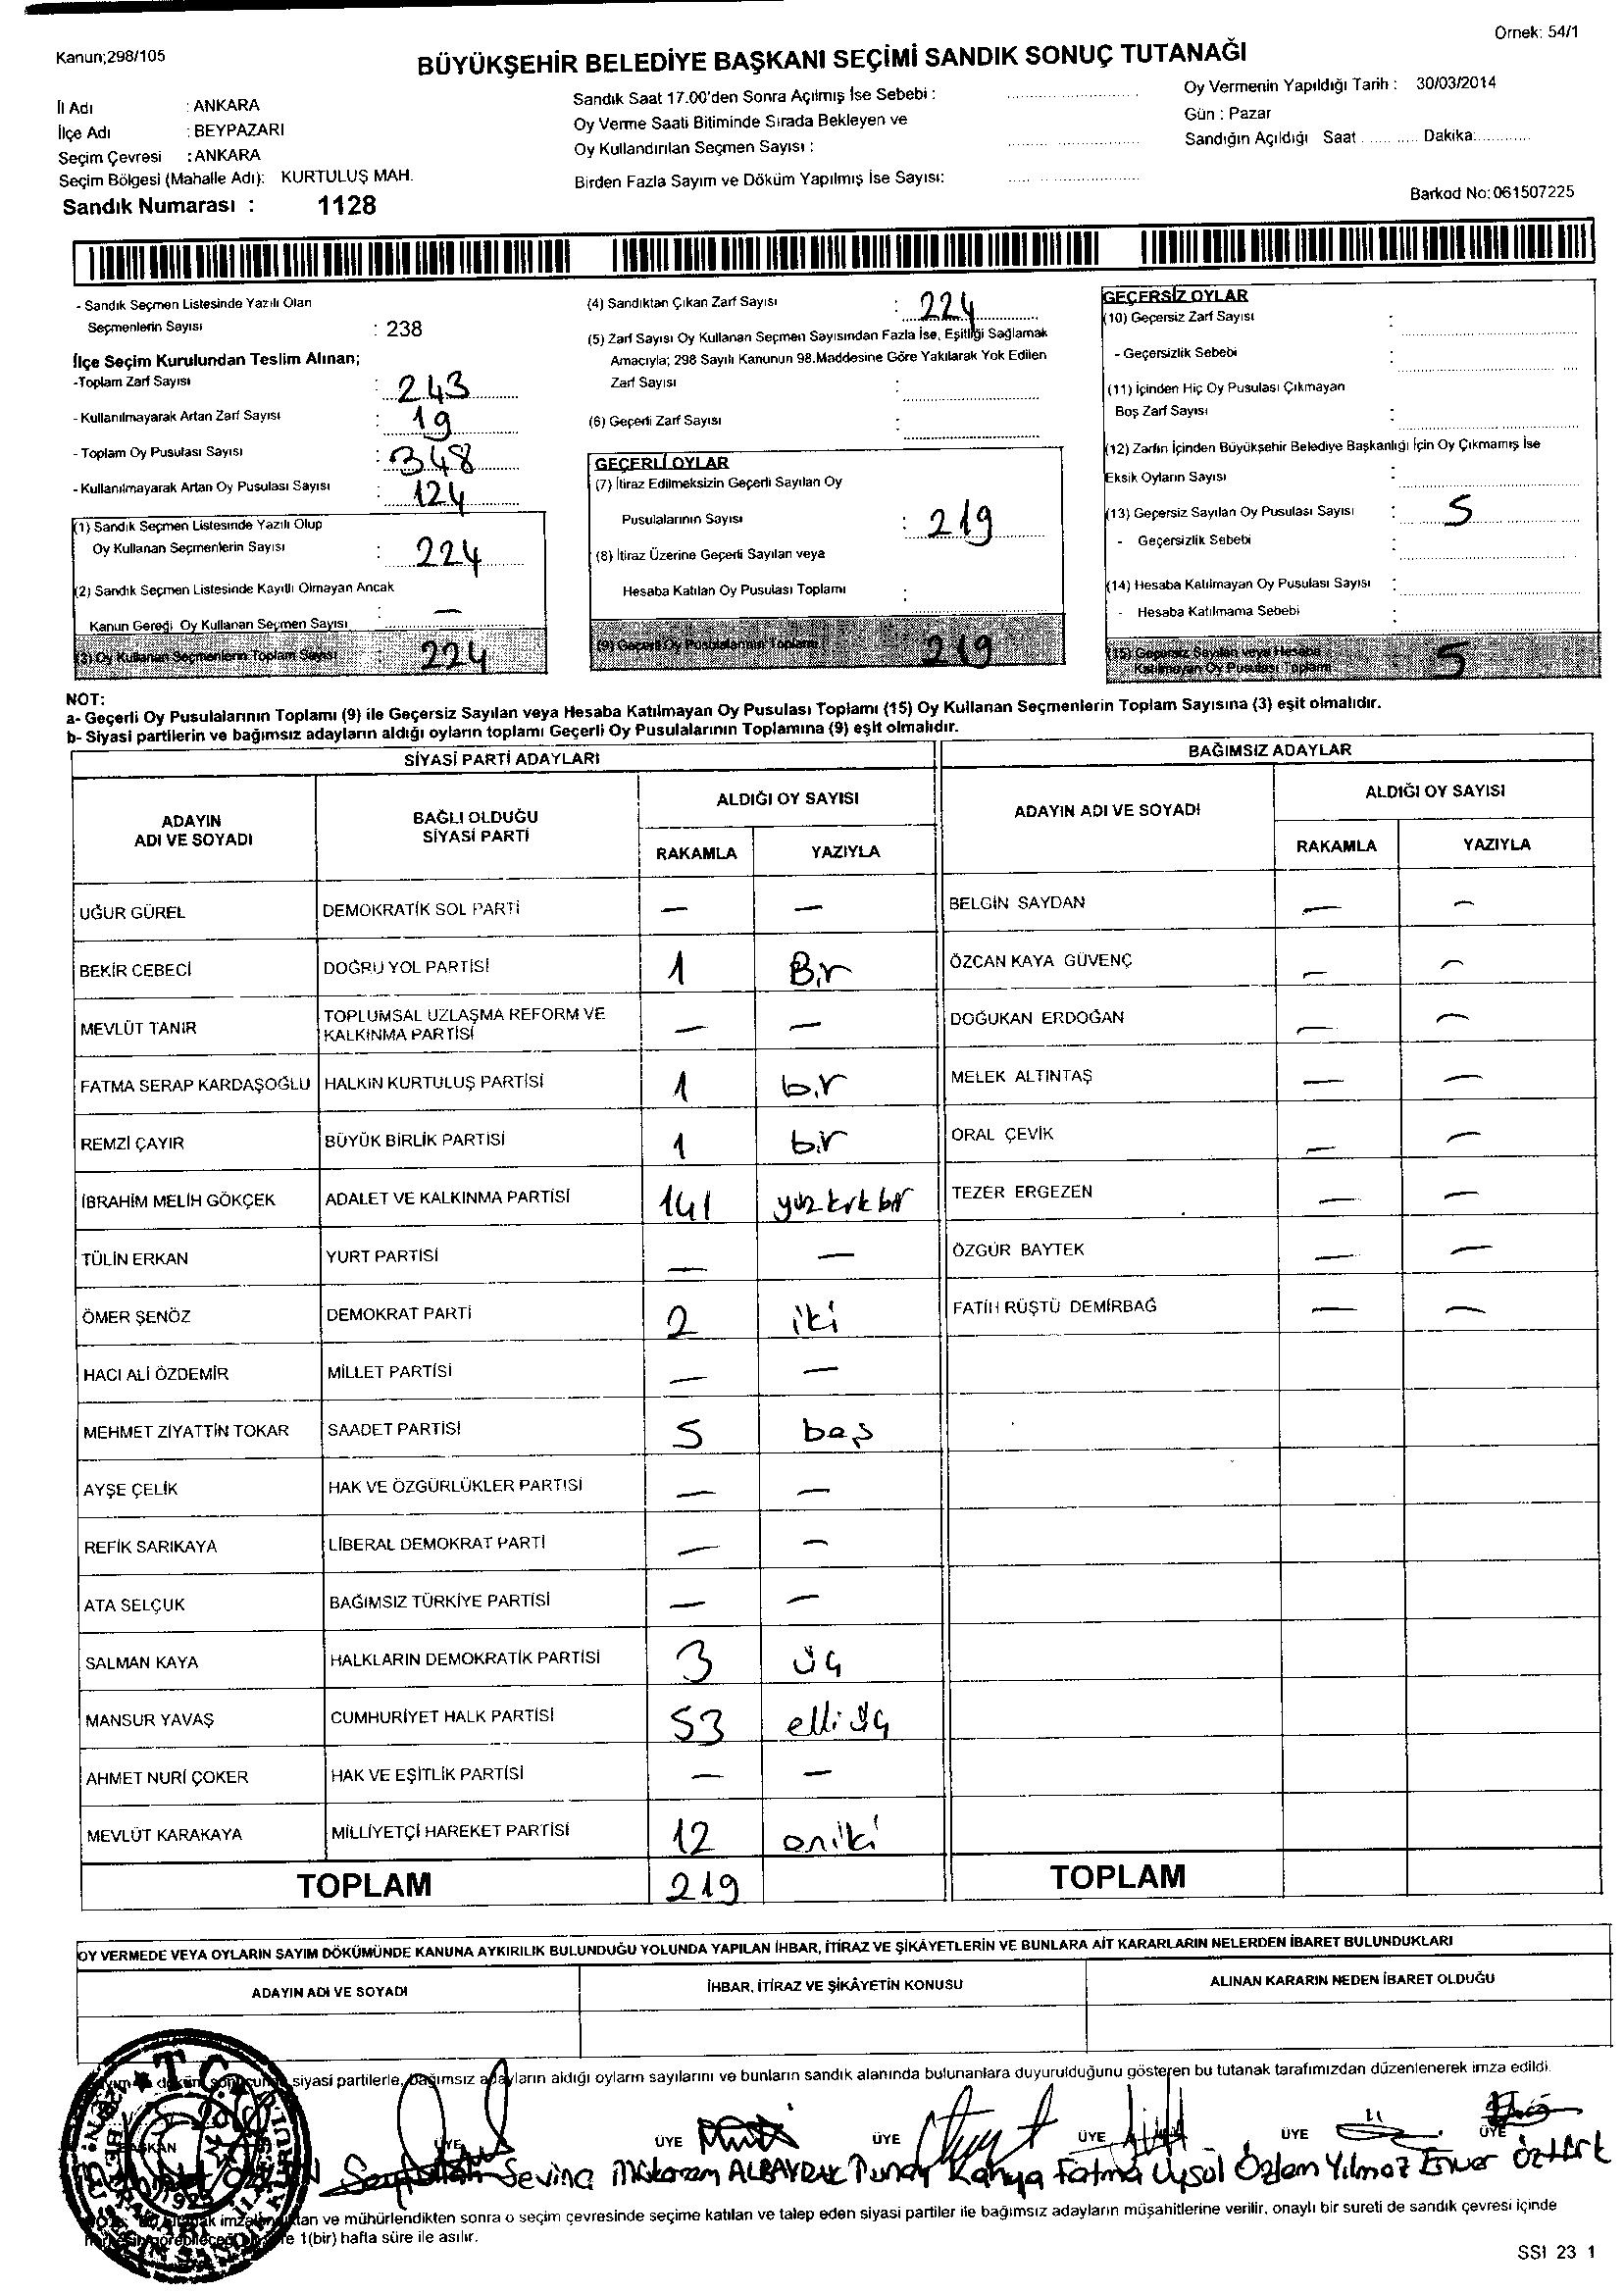 Örnek: 54/1
Kanun;298/105
BÜYÜKŞEHİR BELEDİYE BAŞKANI SEÇİMİ SANDIK SONUÇ TUTANAĞI
İl Adı : ANKARA
İlçe Adı : BEYPAZARI
Seçim Çevresi : ANKARA
Seçim Bölgesi (Mahalle Adı): KURTULUŞ MAH.
Sandık Numarası : 1128
Sandık Saat 17.00'den Sonra Açılmış İse Sebebi :
Oy Verme Saati Bitiminde Sırada Bekleyen ve
Oy Kullandırılan Seçmen Sayısı :
Birden Fazla Sayım ve Döküm Yapılmış İse Sayısı:
Oy Vermenin Yapıldığı Tarih : 30/03/2014
Gün : Pazar
Sandığın Açıldığı Saat ........... Dakika:............
Barkod No:061507225
- Sandık Seçmen Listesinde Yazılı Olan
Seçmenlerin Sayısı : 238
İlçe Seçim Kurulundan Teslim Alınan;
-Toplam Zarf Sayısı : 243
- Kullanılmayarak Artan Zarf Sayısı : 19
- Toplam Oy Pusulası Sayısı : 348
- Kullanılmayarak Artan Oy Pusulası Sayısı : 124
(1) Sandık Seçmen Listesinde Yazılı Olup
Oy Kullanan Seçmenlerin Sayısı : 224
(2) Sandık Seçmen Listesinde Kayıtlı Olmayan Ancak
Kanun Gereği Oy Kullanan Seçmen Sayısı : —
(3) Oy Kullanan Seçmenlerin Toplam Sayısı : 224
(4) Sandıktan Çıkan Zarf Sayısı : 224
(5) Zarf Sayısı Oy Kullanan Seçmen Sayısından Fazla İse, Eşitliği Sağlamak
Amacıyla; 298 Sayılı Kanunun 98.Maddesine Göre Yakılarak Yok Edilen
Zarf Sayısı :
(6) Geçerli Zarf Sayısı :
GEÇERLİ OYLAR
(7) İtiraz Edilmeksizin Geçerli Sayılan Oy
Pusulalarının Sayısı : 219
(8) İtiraz Üzerine Geçerli Sayılan veya
Hesaba Katılan Oy Pusulası Toplamı :
(9) Geçerli Oy Pusulalarının Toplamı : 219
GEÇERSİZ OYLAR
(10) Geçersiz Zarf Sayısı :
- Geçersizlik Sebebi :
(11) İçinden Hiç Oy Pusulası Çıkmayan
Boş Zarf Sayısı :
(12) Zarfın İçinden Büyükşehir Belediye Başkanlığı İçin Oy Çıkmamış İse
Eksik Oyların Sayısı :
(13) Geçersiz Sayılan Oy Pusulası Sayısı : 5
- Geçersizlik Sebebi :
(14) Hesaba Katılmayan Oy Pusulası Sayısı :
- Hesaba Katılmama Sebebi :
(15) Geçersiz Sayılan veya Hesaba
Katılmayan Oy Pusulası Toplamı 5
NOT:
a- Geçerli Oy Pusulalarının Toplamı (9) ile Geçersiz Sayılan veya Hesaba Katılmayan Oy Pusulası Toplamı (15) Oy Kullanan Seçmenlerin Toplam Sayısına (3) eşit olmalıdır.
b- Siyasi partilerin ve bağımsız adayların aldığı oyların toplamı Geçerli Oy Pusulalarının Toplamına (9) eşit olmalıdır.
SİYASİ PARTİ ADAYLARI
ADAYIN ADI VE SOYADI BAĞLI OLDUĞU SİYASİ PARTİ ALDIĞI OY SAYISI
RAKAMLA YAZIYLA
UĞUR GÜREL DEMOKRATİK SOL PARTİ — —
BEKİR CEBECİ DOĞRU YOL PARTİSİ 1 Bir
MEVLÜT TANIR TOPLUMSAL UZLAŞMA REFORM VE KALKINMA PARTİSİ — —
FATMA SERAP KARDAŞOĞLU HALKIN KURTULUŞ PARTİSİ 1 bir
REMZİ ÇAYIR BÜYÜK BİRLİK PARTİSİ 1 bir
İBRAHİM MELİH GÖKÇEK ADALET VE KALKINMA PARTİSİ 141 yüz kırk bir
TÜLİN ERKAN YURT PARTİSİ — —
ÖMER ŞENÖZ DEMOKRAT PARTİ 2 iki
HACI ALİ ÖZDEMİR MİLLET PARTİSİ — —
MEHMET ZİYATTİN TOKAR SAADET PARTİSİ 5 beş
AYŞE ÇELİK HAK VE ÖZGÜRLÜKLER PARTİSİ — —
REFİK SARIKAYA LİBERAL DEMOKRAT PARTİ — —
ATA SELÇUK BAĞIMSIZ TÜRKİYE PARTİSİ — —
SALMAN KAYA HALKLARIN DEMOKRATİK PARTİSİ 3 üç
MANSUR YAVAŞ CUMHURİYET HALK PARTİSİ 53 elli üç
AHMET NURİ ÇOKER HAK VE EŞİTLİK PARTİSİ — —
MEVLÜT KARAKAYA MİLLİYETÇİ HAREKET PARTİSİ 12 oniki
TOPLAM 219
BAĞIMSIZ ADAYLAR
ADAYIN ADI VE SOYADI ALDIĞI OY SAYISI
RAKAMLA YAZIYLA
BELGİN SAYDAN — —
ÖZCAN KAYA GÜVENÇ — —
DOĞUKAN ERDOĞAN — —
MELEK ALTINTAŞ — —
ORAL ÇEVİK — —
TEZER ERGEZEN — —
ÖZGÜR BAYTEK — —
FATİH RÜŞTÜ DEMİRBAĞ — —
TOPLAM
OY VERMEDE VEYA OYLARIN SAYIM DÖKÜMÜNDE KANUNA AYKIRILIK BULUNDUĞU YOLUNDA YAPILAN İHBAR, İTİRAZ VE ŞİKÂYETLERİN VE BUNLARA AİT KARARLARIN NELERDEN İBARET BULUNDUKLARI
ADAYIN ADI VE SOYADI İHBAR, İTİRAZ VE ŞİKÂYETİN KONUSU ALINAN KARARIN NEDEN İBARET OLDUĞU
siyasi partilerle, bağımsız adayların aldığı oyların sayılarını ve bunların sandık alanında bulunanlara duyurulduğunu gösteren bu tutanak tarafımızdan düzenlenerek imza edildi.
T.C.
BAŞKAN ÜYE ÜYE ÜYE ÜYE ÜYE ÜYE
Sevinç Mükerrem ALBAYRAK Tunay Kahya Fatma Uysal Özlem Yılmaz Enver Öztürk
ve mühürlendikten sonra o seçim çevresinde seçime katılan ve talep eden siyasi partiler ile bağımsız adayların müşahitlerine verilir, onaylı bir sureti de sandık çevresi içinde
1(bir) hafta süre ile asılır.
SSI 23 1